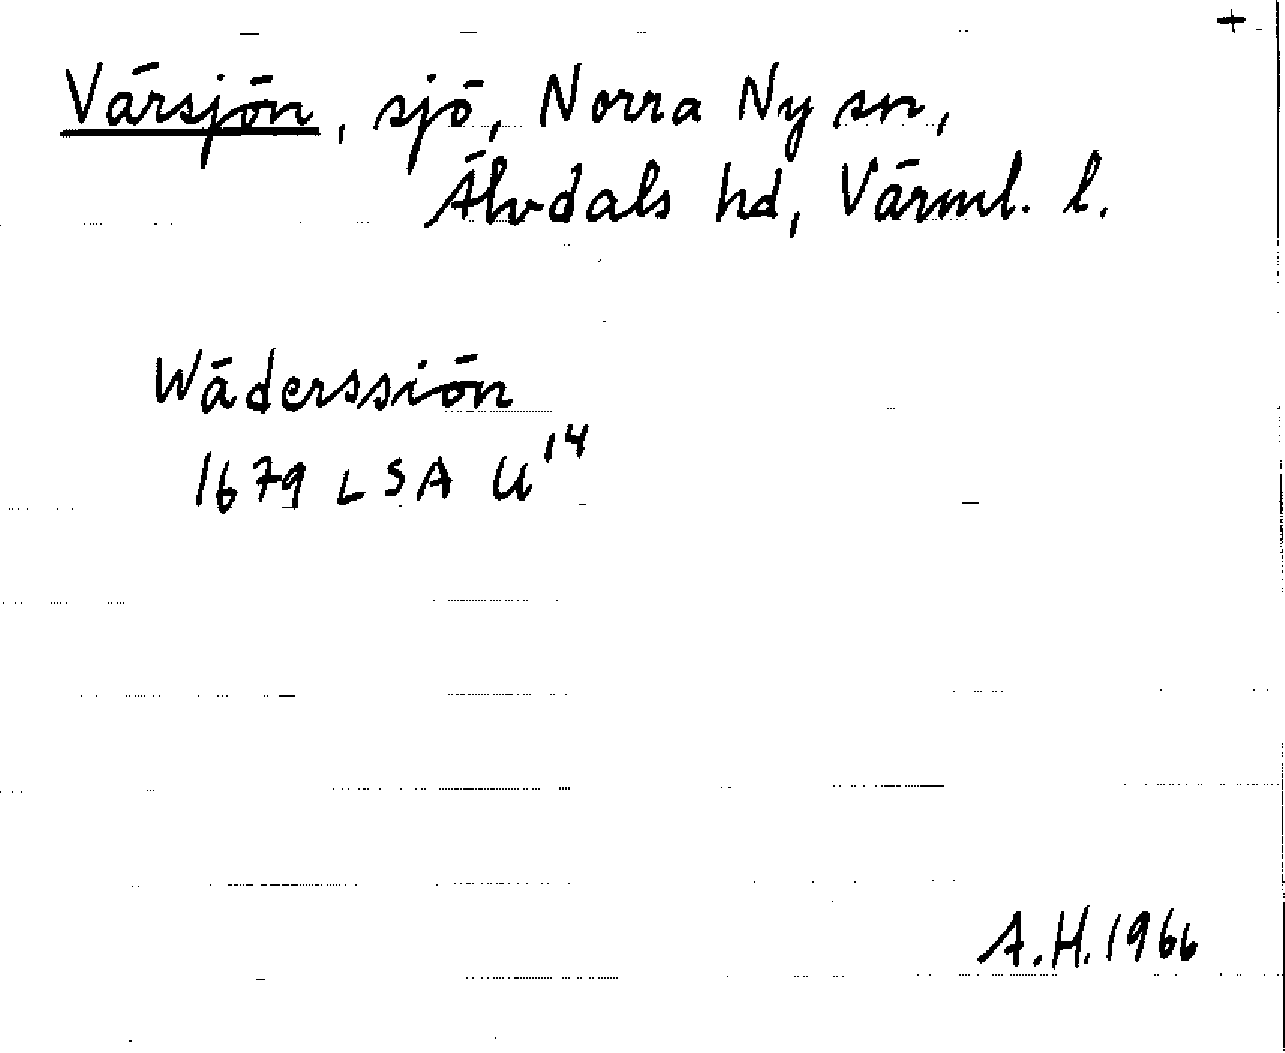 +
Värsjön, sjö, Norra Ny sn,
Älvdals hd, Värml. l.
Wäderssiön
1679 LSA U¹⁴
A.H. 1966